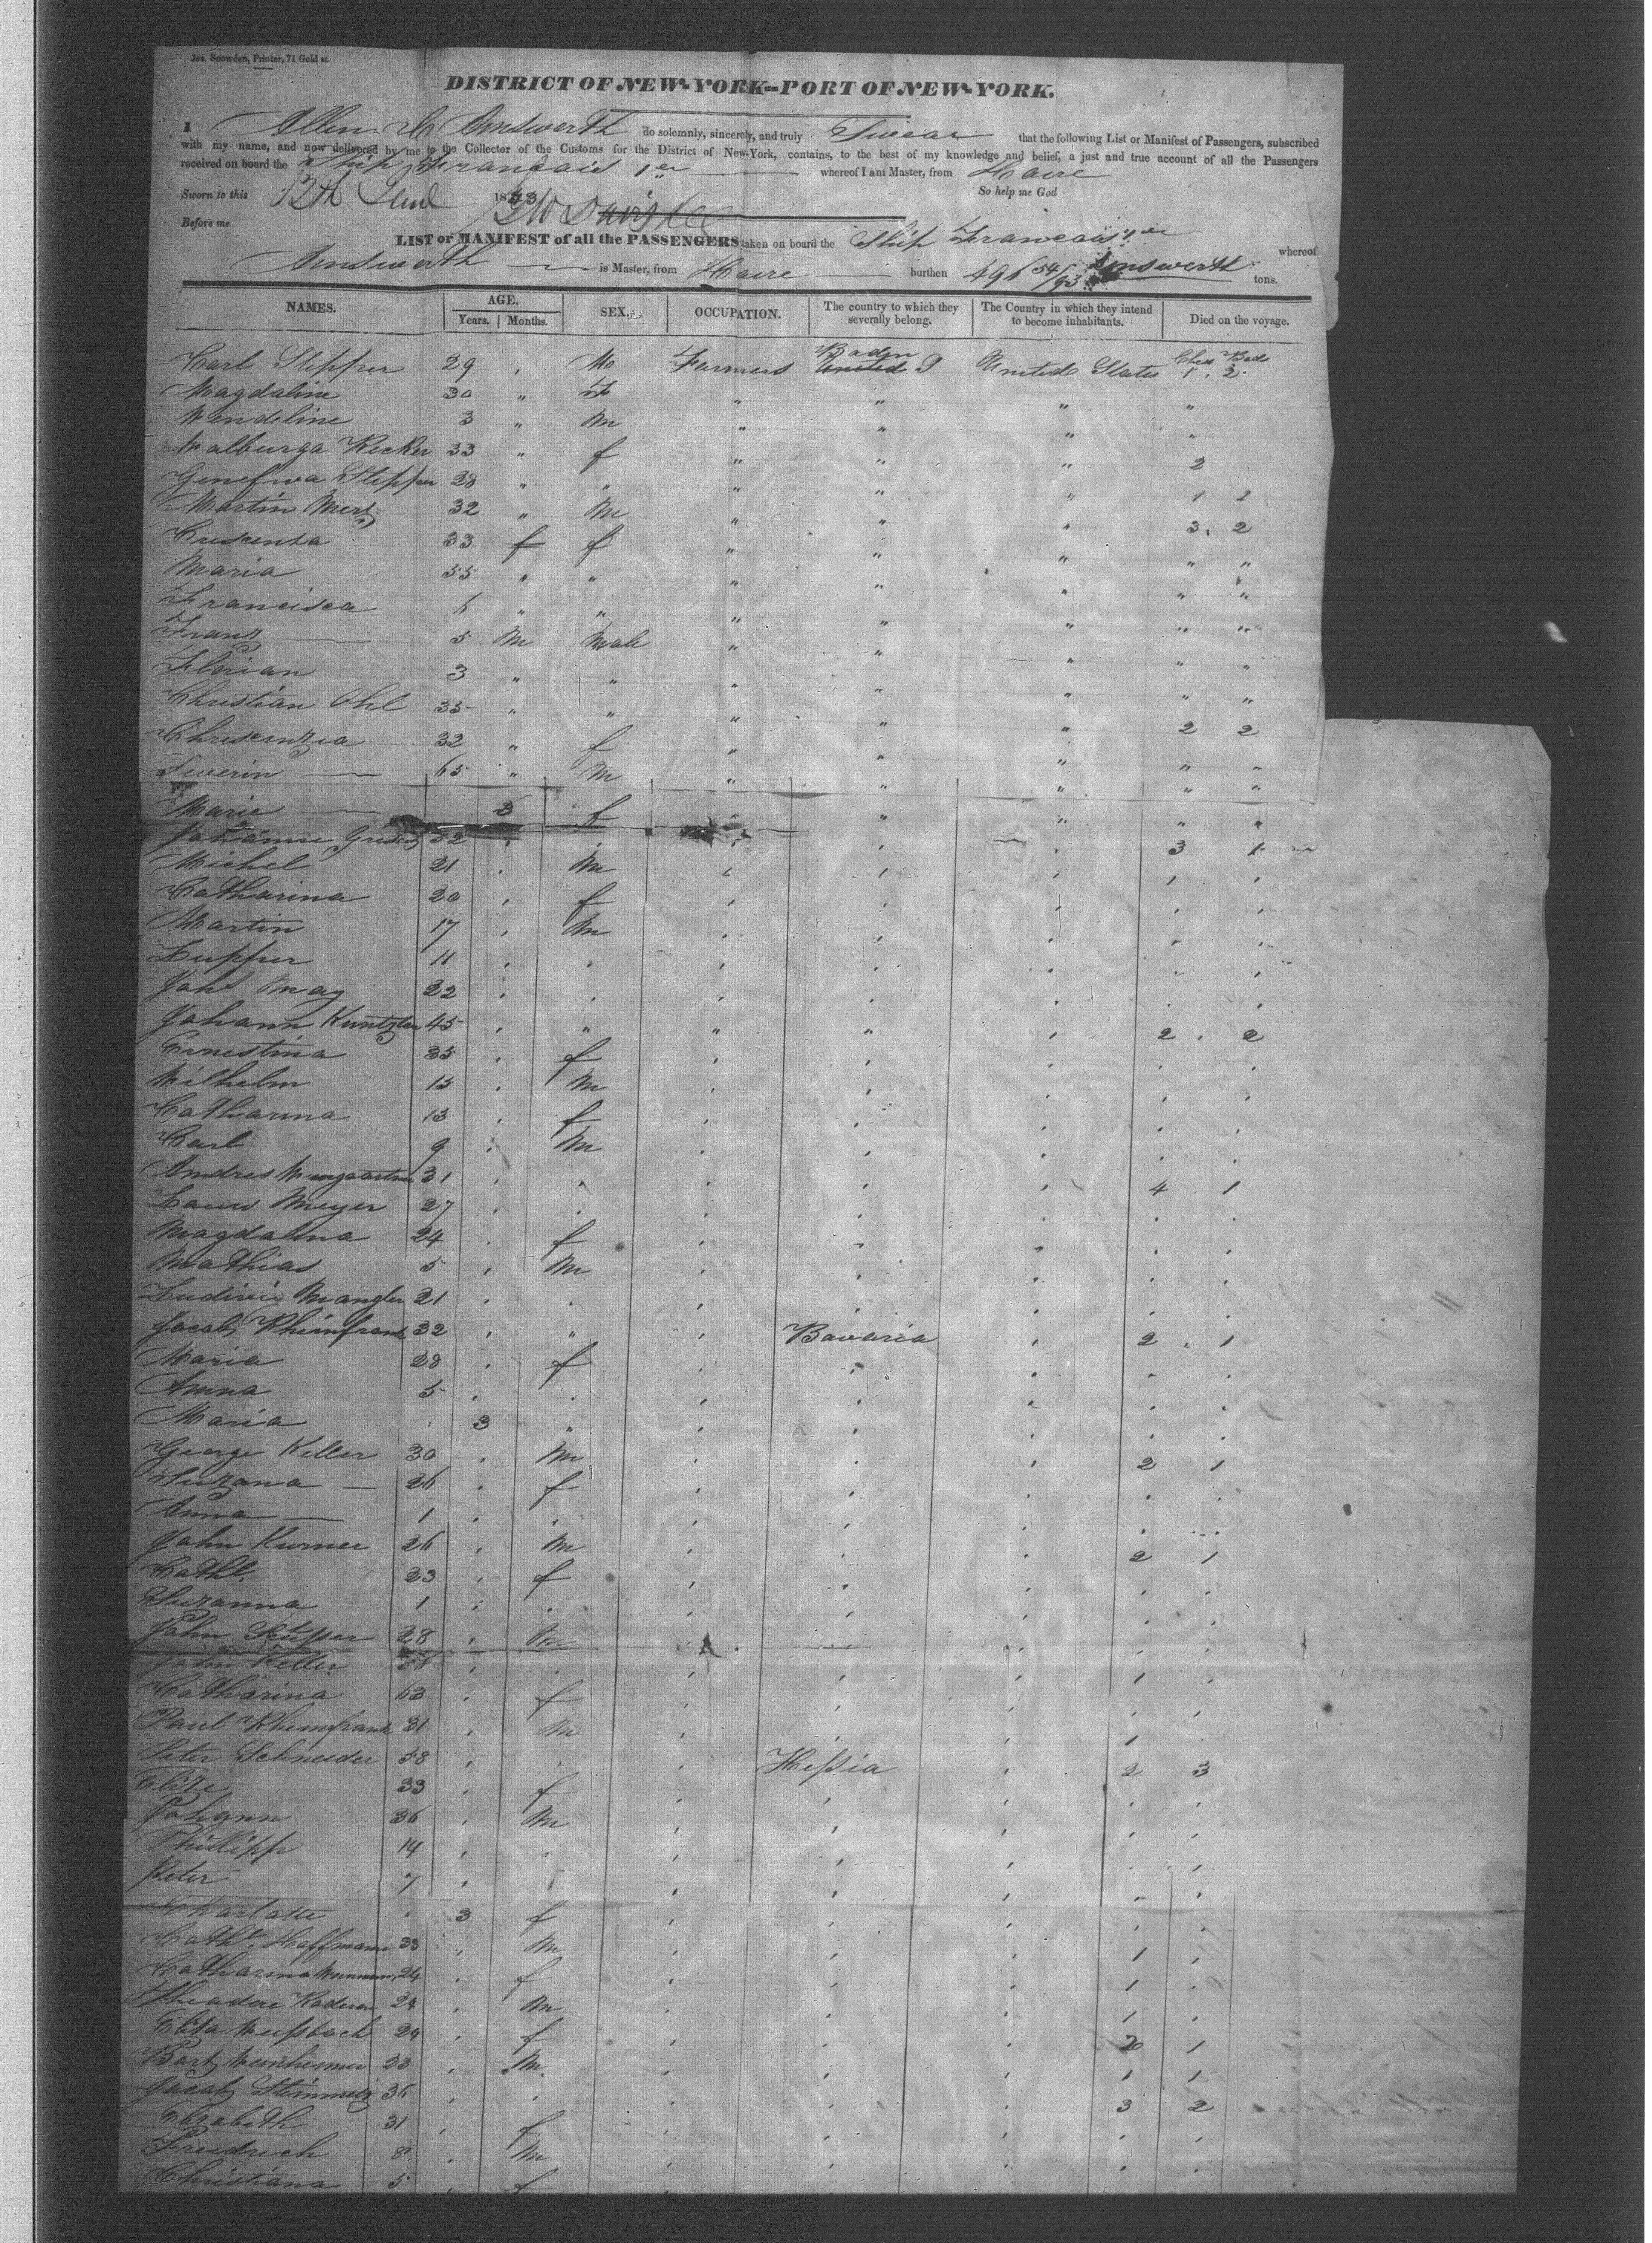 Jos. Snowden, Printer, 71 Gold st.
DISTRICT OF NEW-YORK--PORT OF NEW-YORK.
I Allen C Ainsworth do solemnly, sincerely, and truly Swear that the following List or Manifest of Passengers, subscribed
with my name, and now delivered by me to the Collector of the Customs for the District of New-York, contains, to the best of my knowledge and belief, a just and true account of all the Passengers
received on board the Ship Francais 1er whereof I am Master, from Havre
Sworn to this 12th 1843 So help me God
Before me
LIST or MANIFEST of all the PASSENGERS taken on board the Ship Francais 1er whereof
Ainsworth is Master, from Havre burthen 496 54/95 tons.
NAMES. AGE. Years. Months. SEX. OCCUPATION. The country to which they severally belong. The Country in which they intend to become inhabitants. Died on the voyage.
Carl Stepper 29 M Farmers Baden United States 1 . 2
Magdaline 30 " F " " " "
Wendeline 3 " m " " " "
Walburga Kecker 33 " f " " " 2
Genefva Stepper 28 " " " " " 1 1
Martin Merz 32 " M " " " 3. 2
Crescenza 33 f f " " " " "
Maria 55 " " " " " " "
Francisca 6 " " " " " " "
Franz 5 M Male " " " " "
Florian 3 " " " " " " "
Christian Ohl 35 " " " " " 2 2
Chriscenzia 32 " f " " " " "
Severin 65 " M " " " " "
Marie 3 f " " " " "
Johanne 52 3 1
Michel 21 M 1
Catharina 20 f
Martin 17 M
Lupper 11
Joh May 22
Johann Kuntzler 45 " " " 2 . 2
Ernestina 35 f
Wilhelm 15 M
Catharina 13 f
Carl 9 M
Andres 31 4 1
Louis Meyer 27
Magdalena 24 f
Mathias 5 M
Ludwig Mangler 21
Jacob Rheinfrank 32 " Bavaria 2 . 1
Maria 28 f
Anna 5
Maria 3 "
George Keller 30 M 2 1
Suzana 26 f
Anna 1
John Kurner 26 M 2 1
Cath. 23 f
Suzanna 1
John 28 M
John Keller 1
Catharina 63 f
Paul Rheinfrank 31 M 1
Peter Schneider 38 Heßia 2 3
Elize 33 f
Johann 36 M
Phillipp 14
Peter 7
Charlotte 3 f
Cath. Hoffmann 33 M 1
Catharina 24 f 1
Theadore 24 M 1
Elisa Weißbach 24 f 1
Bart Weinheimer 23 M 1 1
Jacob Steinmetz 36 3 2
Elizabeth 31 f
Freidrich 8 M
Christiana 5 f